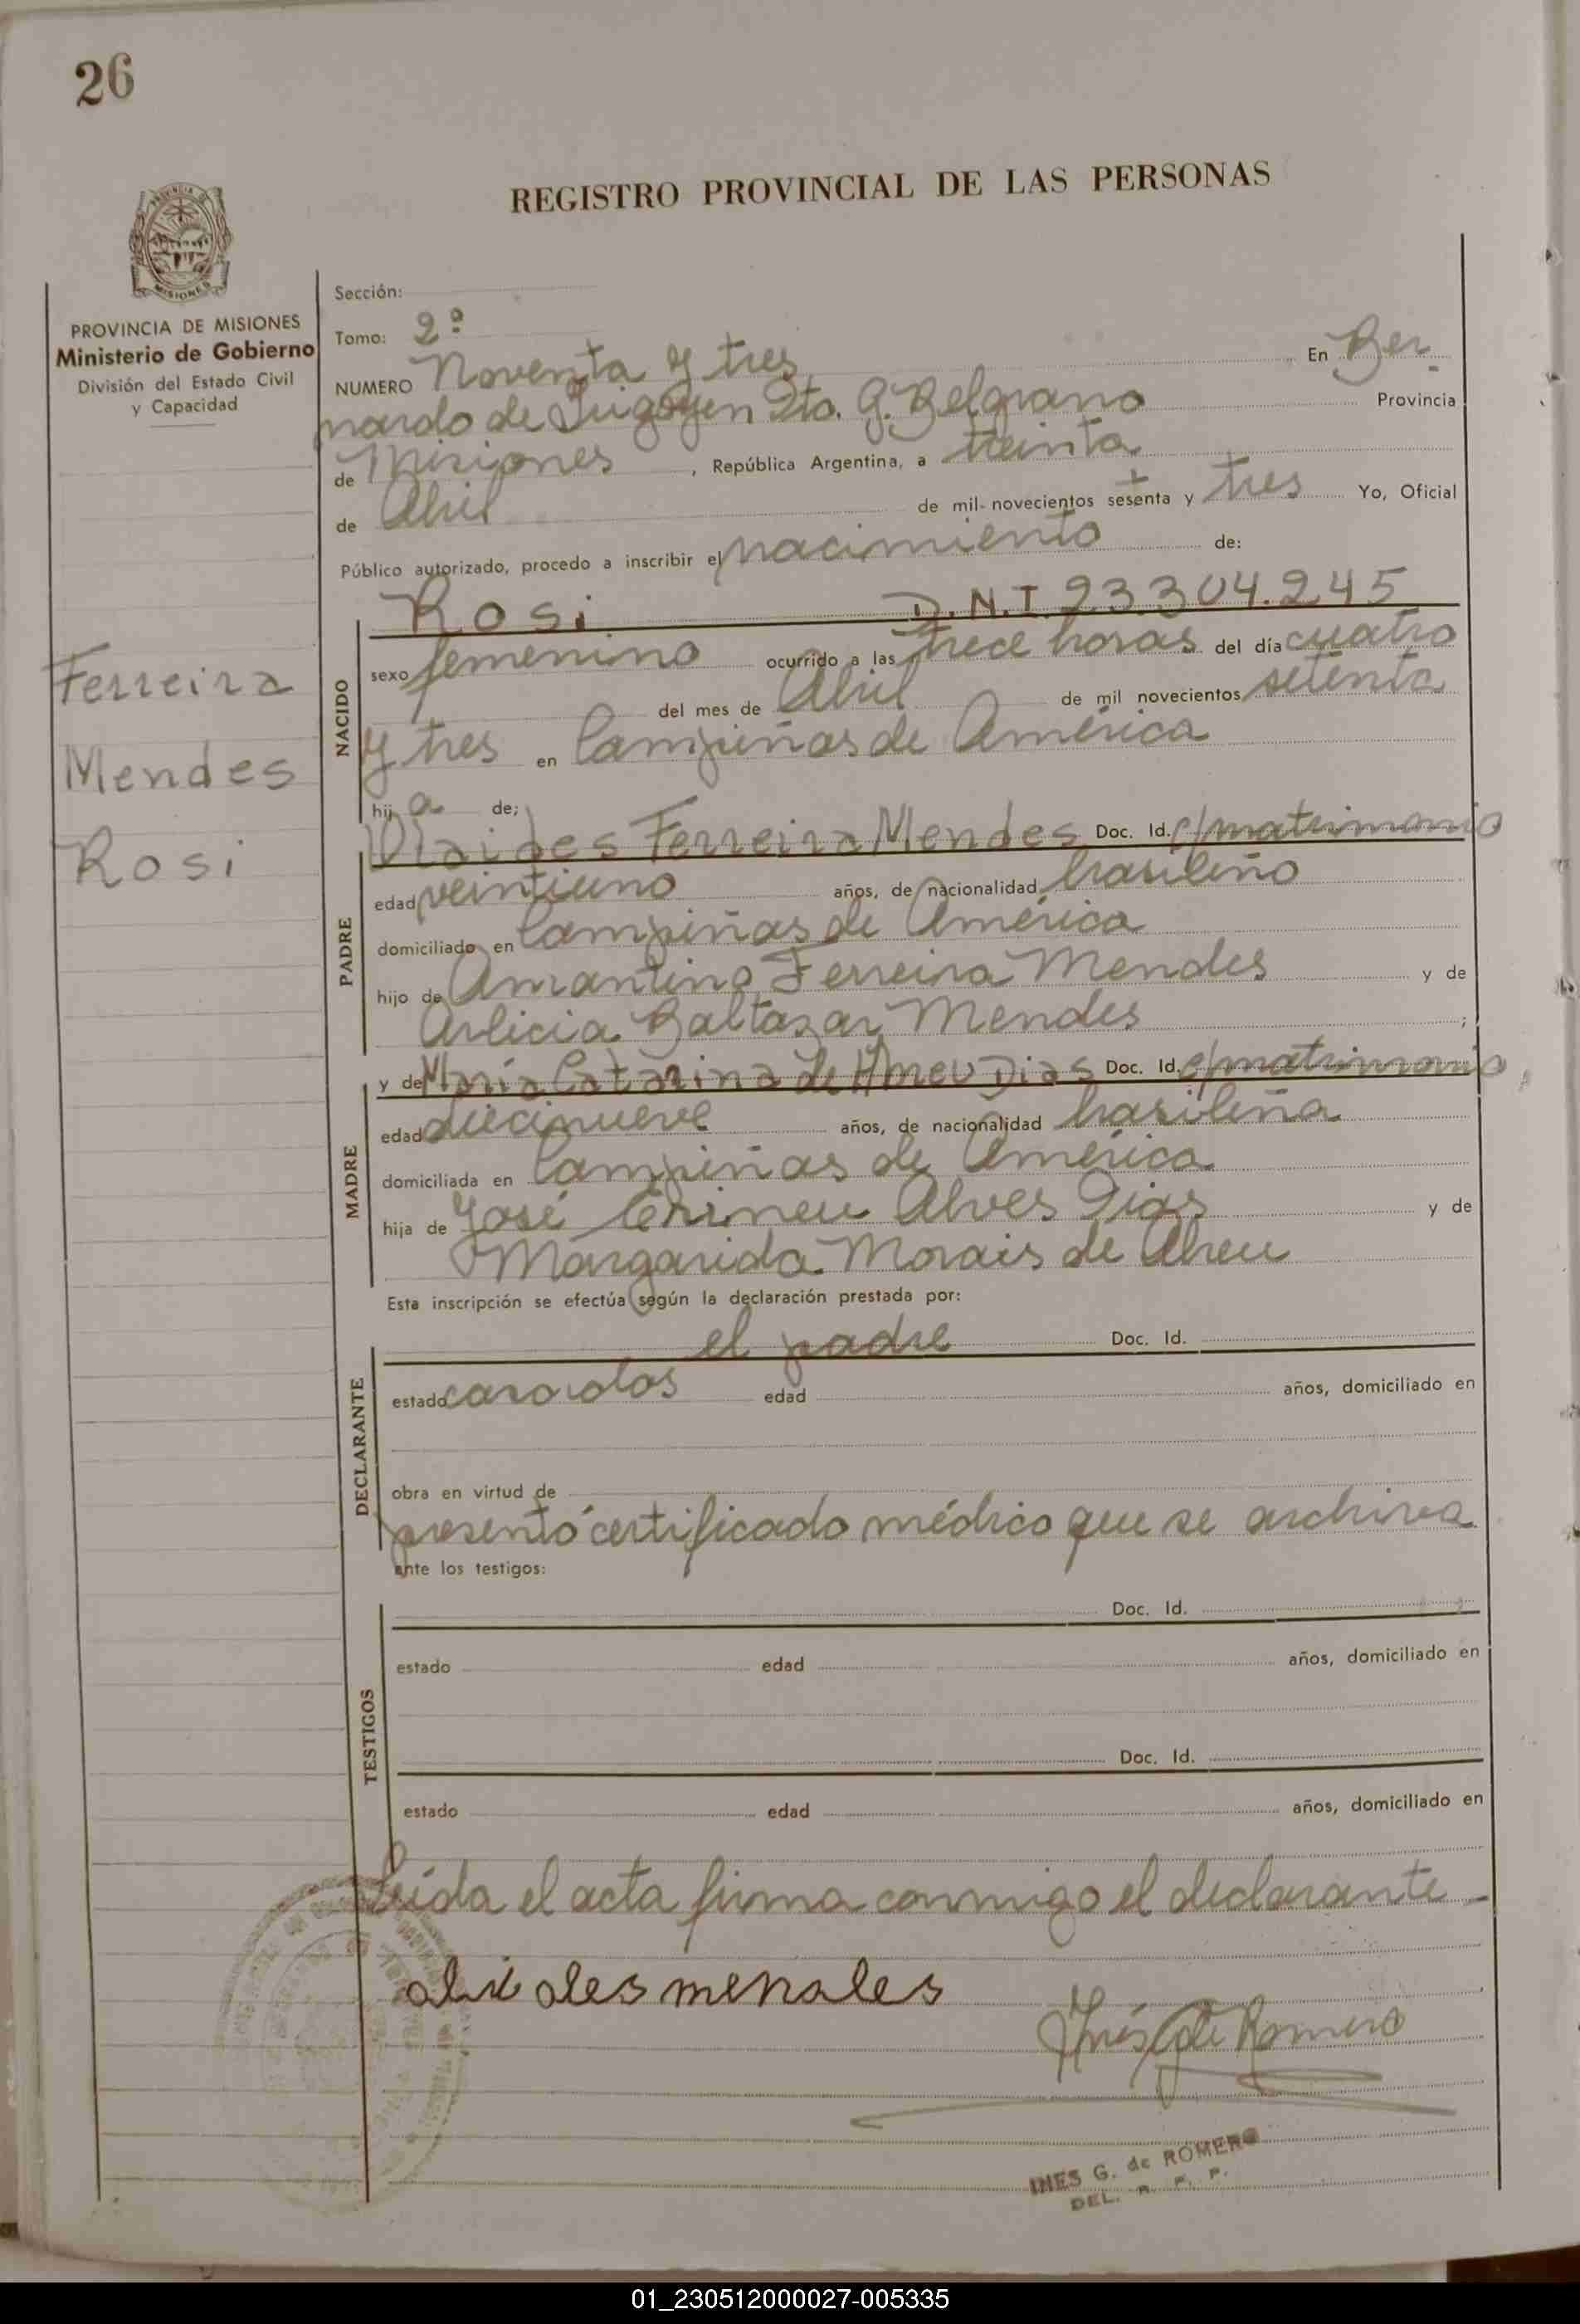 26
REGISTRO PROVINCIAL DE LAS PERSONAS
MISIONES
PROVINCIA DE MISIONES
Ministerio de Gobierno
División del Estado Civil
y Capacidad
Ferreira
Mendes
Rosi
Sección:
Tomo: 2º
NUMERO Noventa y tres En Ber-
nardo de Irigoyen Dto. G. Belgrano Provincia
de Misiones, República Argentina, a treinta
de Abril de mil novecientos sesenta y tres Yo, Oficial
Público autorizado, procedo a inscribir el nacimiento de:
Rosi D.N.I 23.304.245
NACIDO
sexo femenino ocurrido a las trece horas del día cuatro
del mes de Abril de mil novecientos setenta
y tres en Campiñas de América
hija de;
Ferreira Mendes Doc. Id. c/matrimonio
PADRE
edad veintiuno años, de nacionalidad brasileño
domiciliado en Campiñas de América
hijo de Amantino Ferreira Mendes y de
Arlicia Baltazar Mendes ;
y de María Catarina de Abreu Dias Doc. Id. c/matrimonio
MADRE
edad diecinueve años, de nacionalidad brasileña
domiciliada en Campiñas de América
hija de José Erineu Alves Dias y de
Margarida Morais de Abreu
Esta inscripción se efectúa según la declaración prestada por:
el padre Doc. Id.
DECLARANTE
estado casados edad años, domiciliado en
obra en virtud de
presentó certificado médico que se archiva
ante los testigos:
Doc. Id.
TESTIGOS
estado edad años, domiciliado en
Doc. Id.
estado edad años, domiciliado en
Leída el acta firma conmigo el declarante-
Inés G. de Romero
INES G. de ROMERO
DEL. R. P. P.
01_230512000027-005335